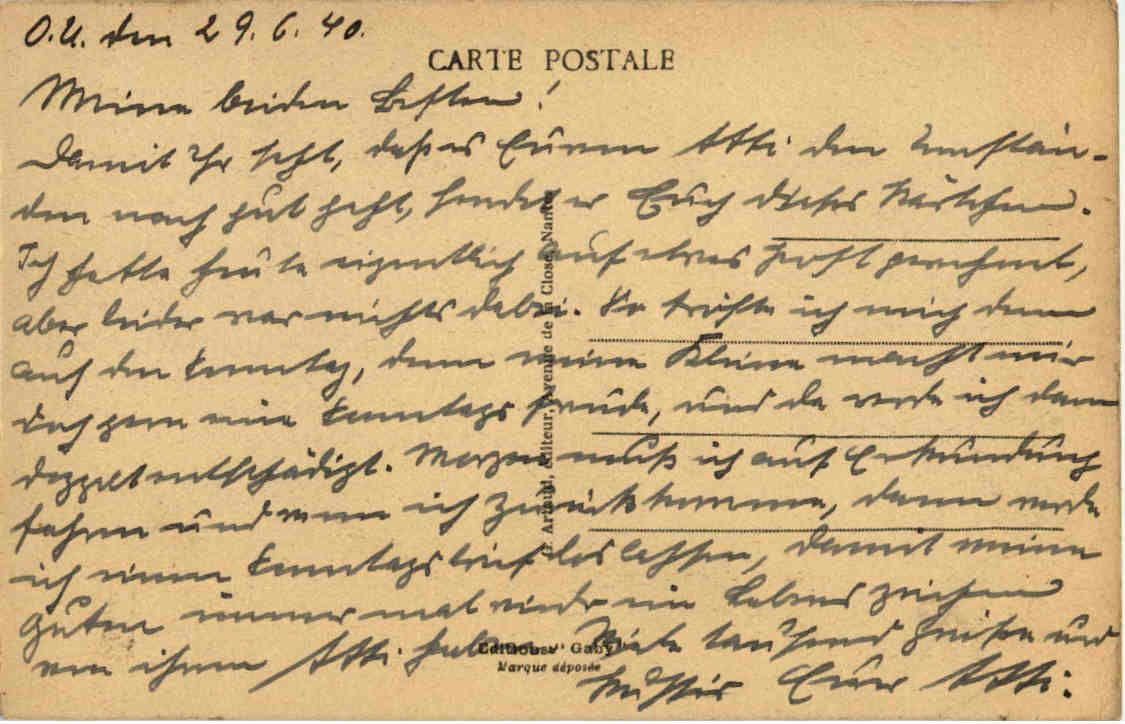 O.U. den 29.6.40.
CARTE POSTALE
Meine beiden Besten!
Damit Ihr seht, daß es Eurem Atti den Umstän-
den nach gut geht, sendet er Euch dieses Kärtchen.
Ich hatte heute eigentlich auf etwas Post gerechnet,
aber leider war nichts dabei. So tröste ich mich denn
auf den Sonntag, denn meine Kleine macht mir
doch gern eine Sonntagsfreude, und da werde ich dann
doppelt entschädigt. Morgen muß ich auf Erkundung
fahren und wenn ich zurückkomme, dann werde
ich einen Sonntagsbrief loslassen, damit meine
Guten immer mal wieder ein Lebenszeichen
von ihrem Atti haben. Viele tausend Grüße und
Küsse Euer Atti.
Artaud, Editeur, Avenue de la Close, Nantes
Editions "Gaby"
Marque déposée